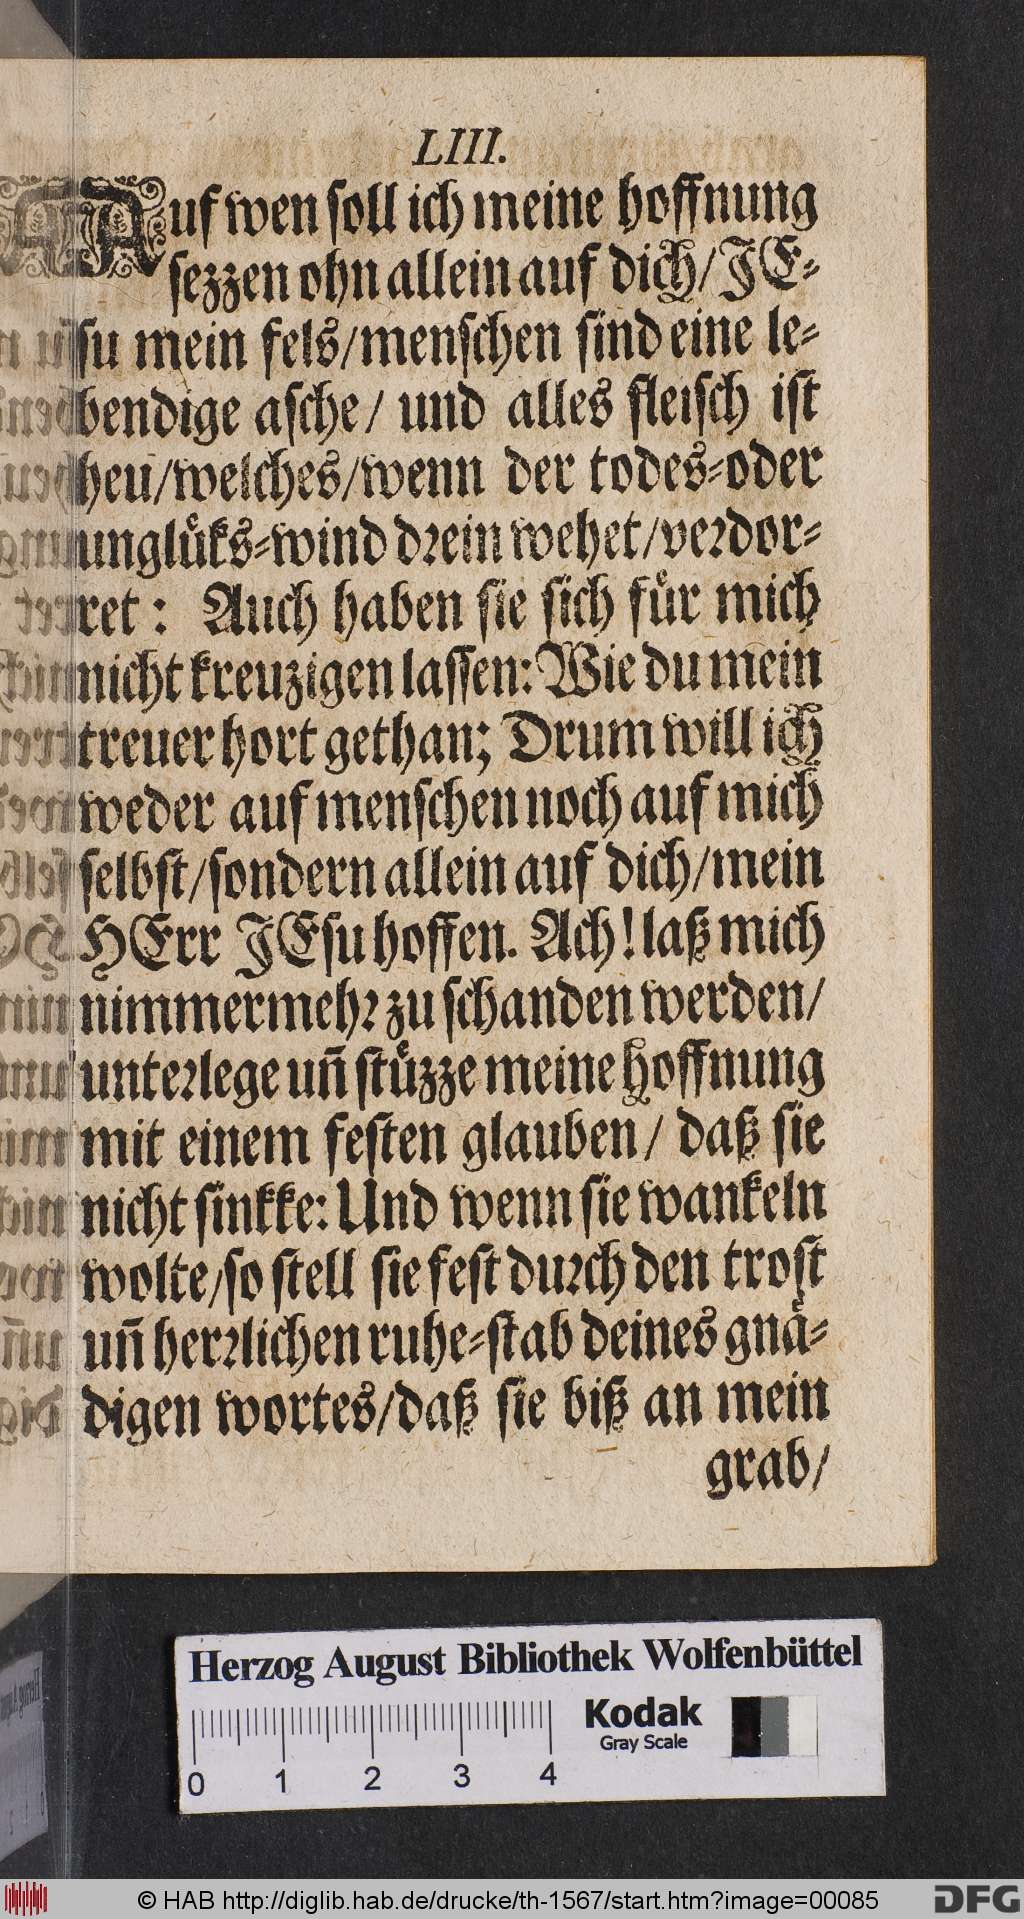 LIII.
Auf wen soll ich meine hoffnung
sezzen ohn allein auf dich/ JE-
su mein fels/menschen sind eine le-
bendige asche/ und alles fleisch ist
heu/welches/wenn der todes-oder
unglůks-wind drein wehet/verdor-
ret: Auch haben sie sich fůr mich
nicht kreuzigen lassen: Wie du mein
treuer hort gethan; Drum will ich
weder auf menschen noch auf mich
selbst/sondern allein auf dich/mein
HErr JEsu hoffen. Ach! laß mich
nimmermehr zu schanden werden/
unterlege uñ stůzze meine hoffnung
mit einem festen glauben/ daß sie
nicht sinkke: Und wenn sie wankeln
wolte/so stell sie fest durch den trost
uñ herrlichen ruhe-stab deines gnå-
digen wortes/daß sie biß an mein
grab/
Herzog August Bibliothek Wolfenbüttel
Kodak
Gray Scale
0 1 2 3 4
© HAB http://diglib.hab.de/drucke/th-1567/start.htm?image=00085
DFG